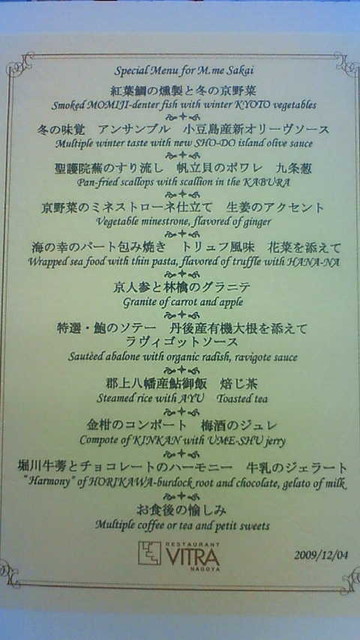 Special Menu for M.me Sakai
紅葉鯛の燻製と冬の京野菜
Smoked MOMIJI-denter fish with winter KYOTO vegetables
冬の味覚 アンサンブル 小豆島産新オリーヴソース
Multiple winter taste with new SHO-DO island olive sauce
聖護院蕪のすり流し 帆立貝のポワレ 九条葱
Pan-fried scallops with scallion in the KABURA
京野菜のミネストローネ仕立て 生姜のアクセント
Vegetable minestrone, flavored of ginger
海の幸のパート包み焼き トリュフ風味 花菜を添えて
Wrapped sea food with thin pasta, flavored of truffle with HANA-NA
京人参と林檎のグラニテ
Granite of carrot and apple
特選・鮑のソテー 丹後産有機大根を添えて
ラヴィゴットソース
Sautèed abalone with organic radish, ravigote sauce
郡上八幡産鮎御飯 焙じ茶
Steamed rice with AYU Toasted tea
金柑のコンポート 梅酒のジュレ
Compote of KINKAN with UME-SHU jerry
堀川牛蒡とチョコレートのハーモニー 牛乳のジェラート
"Harmony" of HORIKAWA-burdock root and chocolate, gelato of milk
お食後の愉しみ
Multiple coffee or tea and petit sweets
RESTAURANT
VITRA
NAGOYA
2009/12/04